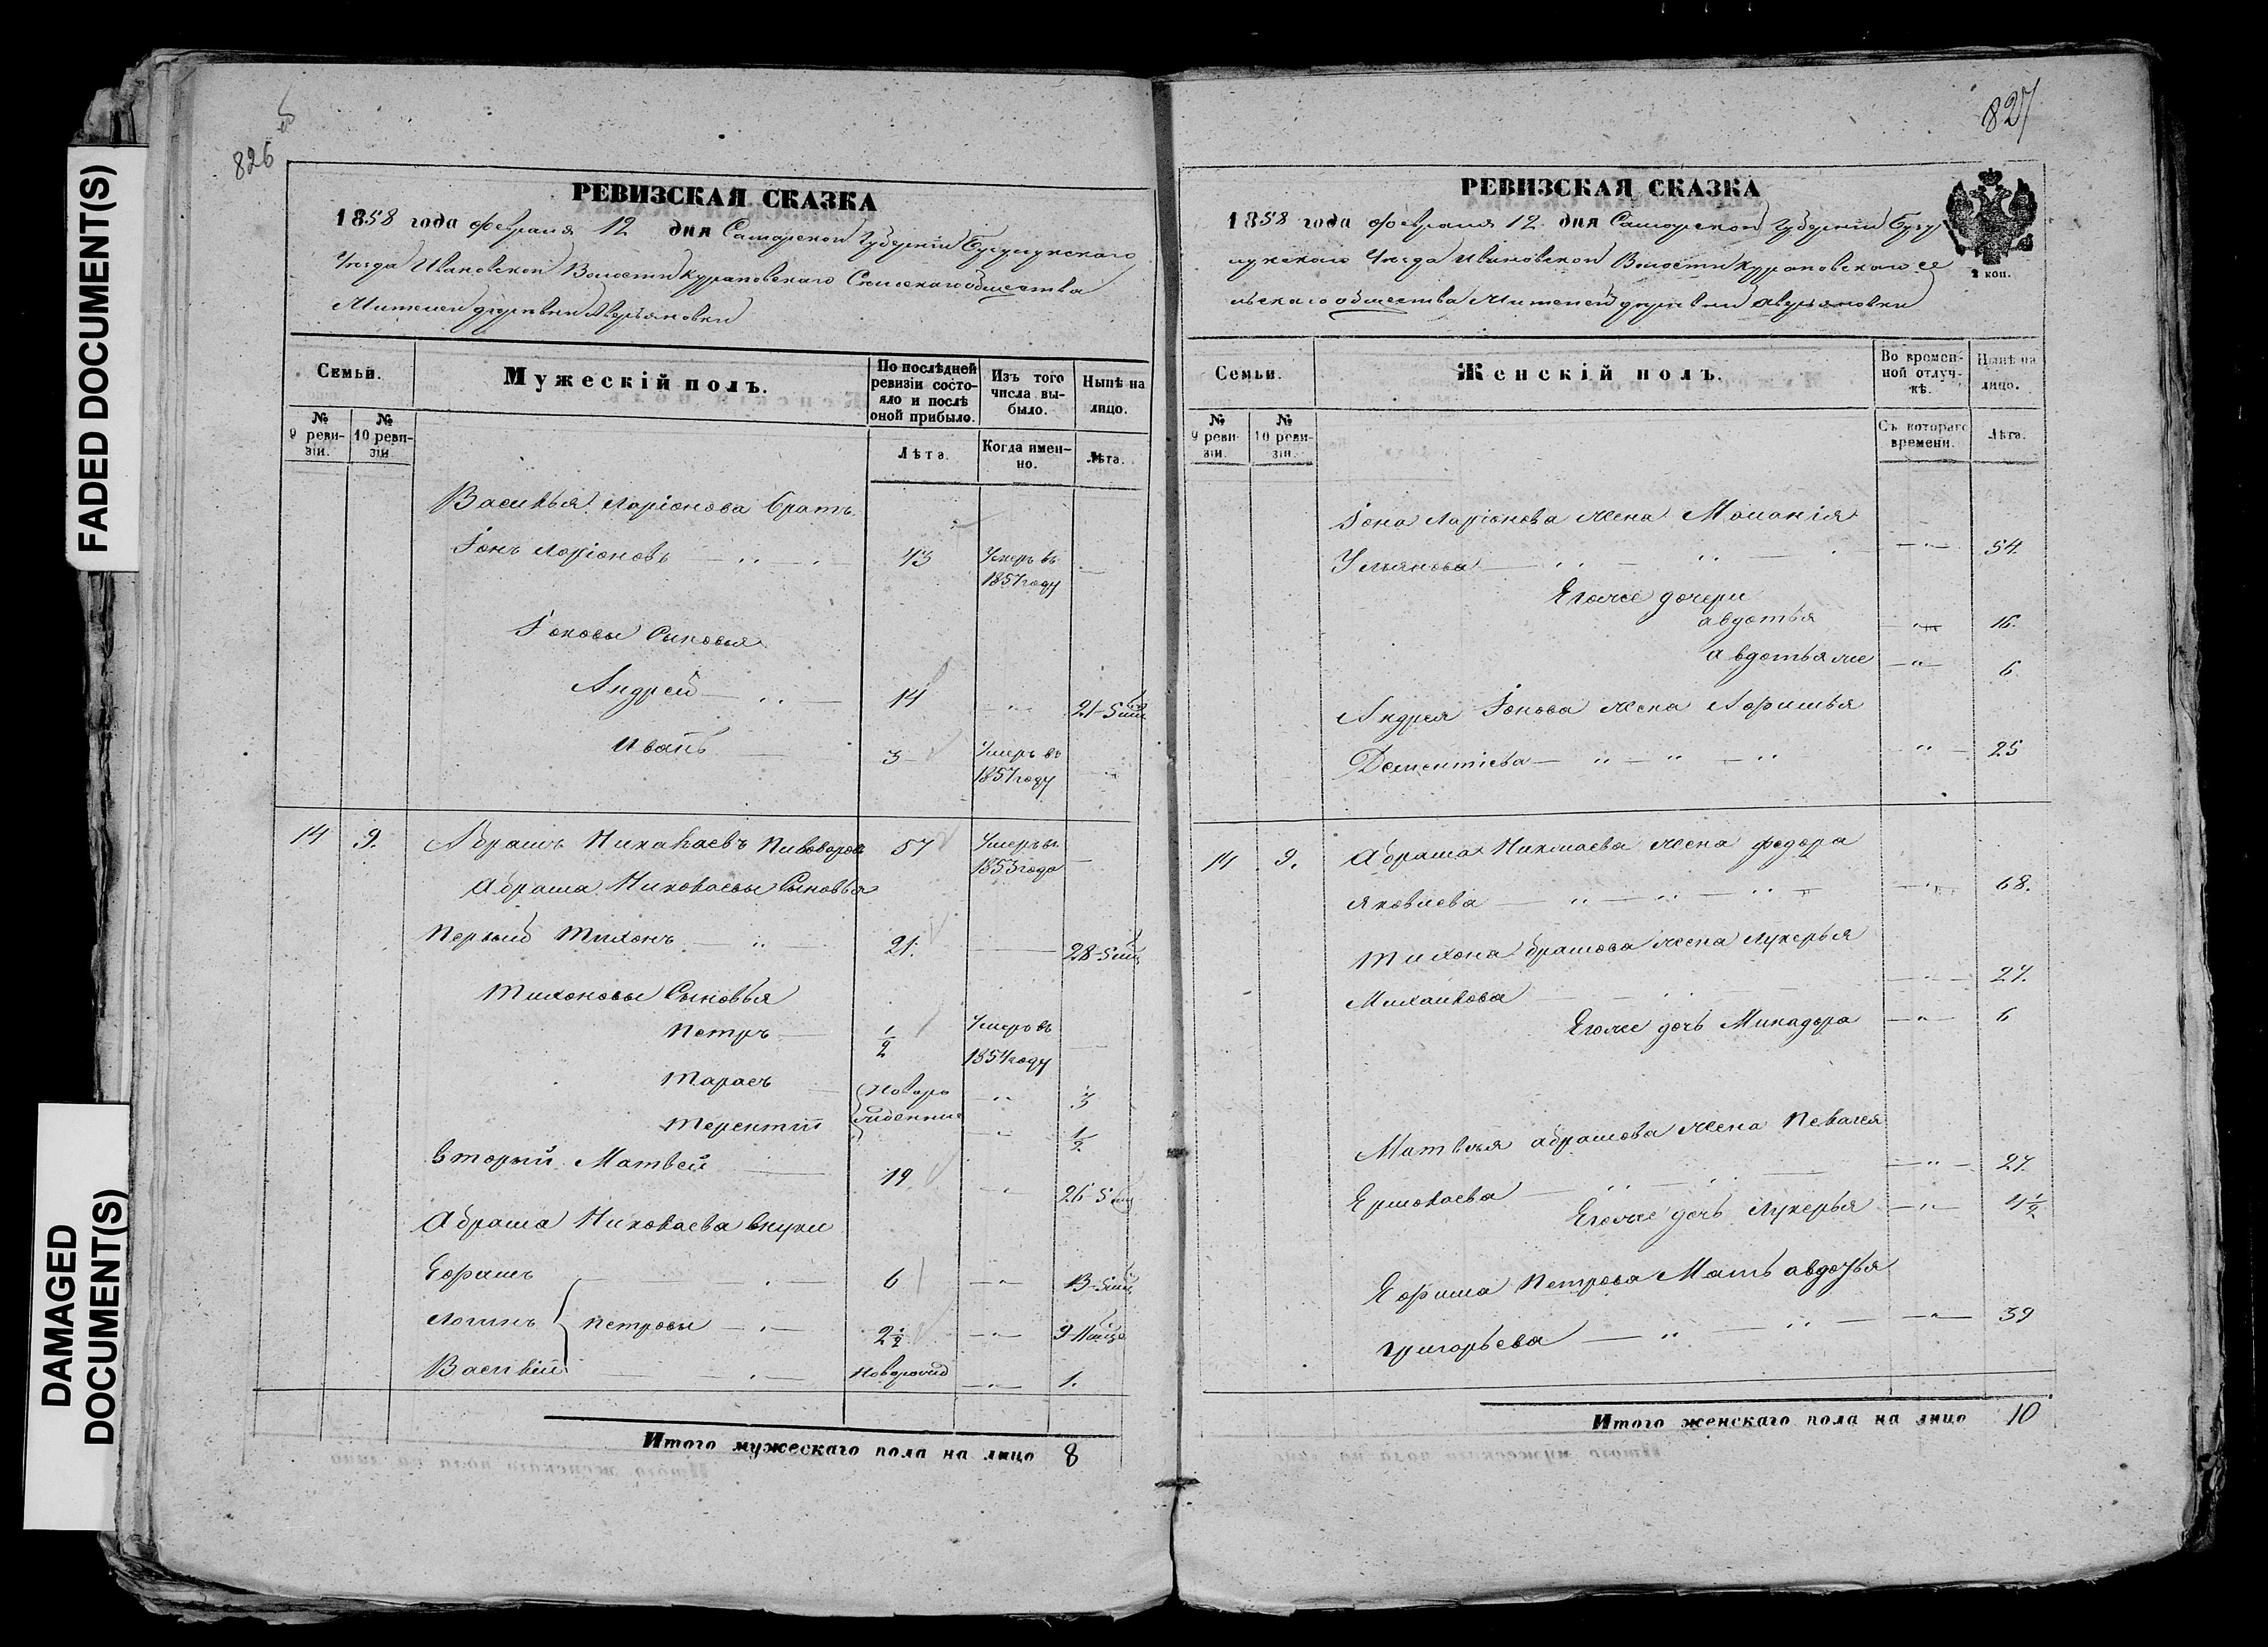 FADED DOCUMENT(S)
DAMAGED
DOCUMENT(S)
826
РЕВИЗСКАЯ СКАЗКА
1858 года февраля 12 дня Самарской Губерніи Бузулукскаго
Уѣзда Ивановской Волости Курaповскаго Сельскаго общества
Жителей деревни Аверьяновки
Семьи.
Мужескій полъ.
По послѣдней ревизіи состояло и послѣ оной прибыло.
Изъ того числа выбыло.
Нынѣ на лицо.
№ 9 ревизіи.
№ 10 ревизіи.
Лѣта.
Когда именно.
Лѣта.
Василья Ларіонова братъ
Іонъ Ларіоновъ 43 Умеръ въ 1857 году
Іоновы Сыновья
Андрей 14 21
Иванъ 3 Умеръ въ 1857 году
14 9. Абрамъ Николаевъ Пивоваровъ 57 Умеръ въ 1853 года
Абрама Николаевы Сыновья
Первый Тихонъ 21. 28
Тихоновы Сыновья
Петръ 1/2 Умеръ въ 1854 году
Тарасъ Новорожденные 3
Терентій 1/2
Вторый Матвей 19 26
Абрама Николаева внуки
Ефимъ 6 13
Логинъ Петровы 2 1/2 9
Василій Новорожд 1.
Итого мужескаго пола на лицо 8
827
РЕВИЗСКАЯ СКАЗКА
1858 года февраля 12 дня Самарской Губерніи Бузу
лукскаго Уѣзда Ивановской Волости Кураповскаго се
льскаго общества Жителей деревни Аверьяновки
2 коп.
Семьи.
Женскій полъ.
Во временной отлучкѣ.
Нынѣ на лицо.
№ 9 ревизіи.
№ 10 ревизіи.
Съ котораго времени.
Лѣта.
Іона Ларіонова жена Маланія
Ульянова 54.
Егоже дочери
авдотья 16.
авдотья же 6.
Андрея Іонова жена Афимья
Дементіева 25
14 9. Абрама Николаева жена федора
Яковлева 68.
Тихона Абрамова жена Лукерья
Михайлова 27.
Егоже дочь Минадора 6
Матвѣя абрамова жена Пелагея
Ермолаева 27.
Егоже дочь Лукерья 4 1/2
Ефима Петрова Мать авдотья
Григорьева 39
Итого женскаго пола на лицо 10